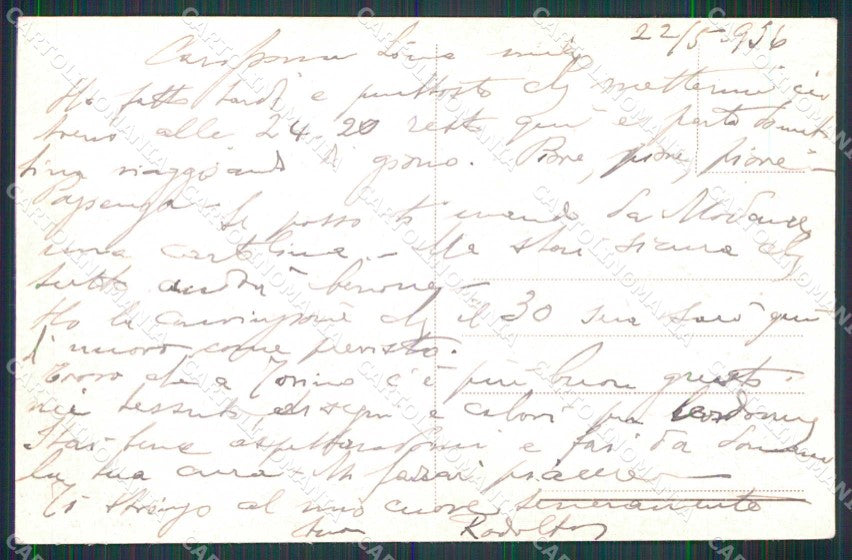 22/5 956
Carissima mia
Ho fatto tardi e piuttosto che mettermi in
treno alle 24.20 resto qui e parto
viaggiando di giorno. Piove, piove, piove
Pazienza. Se posso ti mando da Modane
una cartolina - Ma stai sicura che
tutto andrà benone
Ho la convinzione che il 30 sera sarò qui
di nuovo come previsto.
Trovo che a Torino c'è più buon gusto
nei tessuti disegni e colori per
Stai bene aspettandomi e fai da
la tua cura - Mi farai piacere
Ti stringo al mio cuore teneramente
tuo Rodolfo
CARTOLINOMANIA